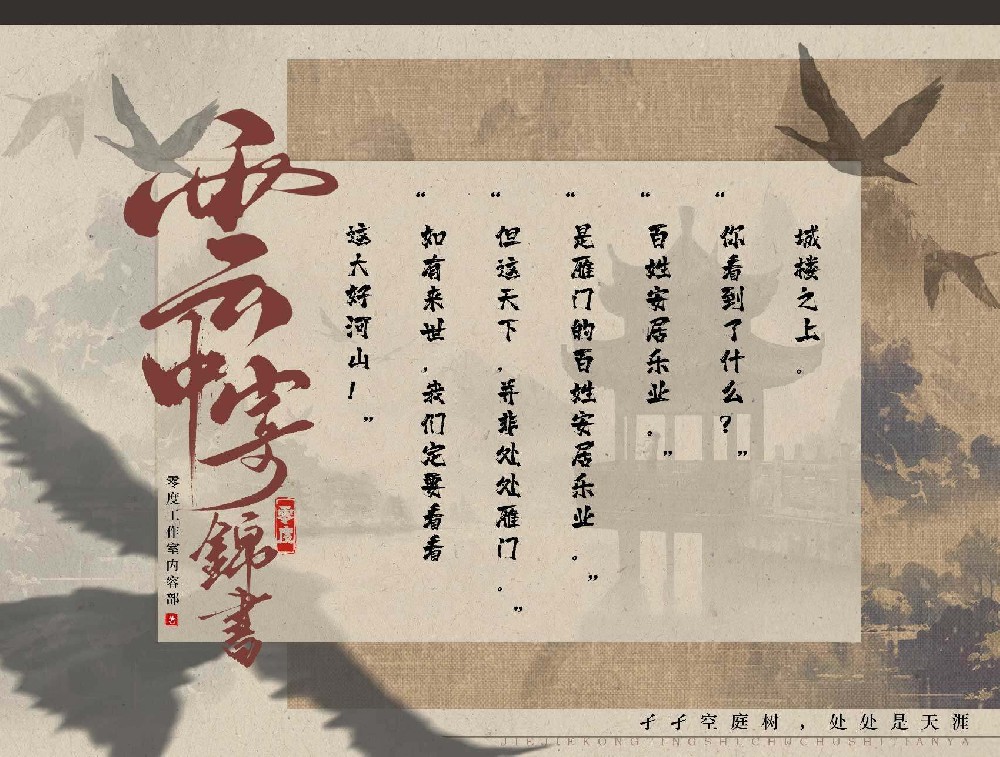 城楼之上。
“你看到了什么？”
“百姓安居乐业。”
“是雁门的百姓安居乐业。”
“但这天下，并非处处雁门。”
“如有来世，我们定要看看
这大好河山！”
雲云中寄
錦書
零度
零度工作室内容部
孑孑空庭树，处处是天涯